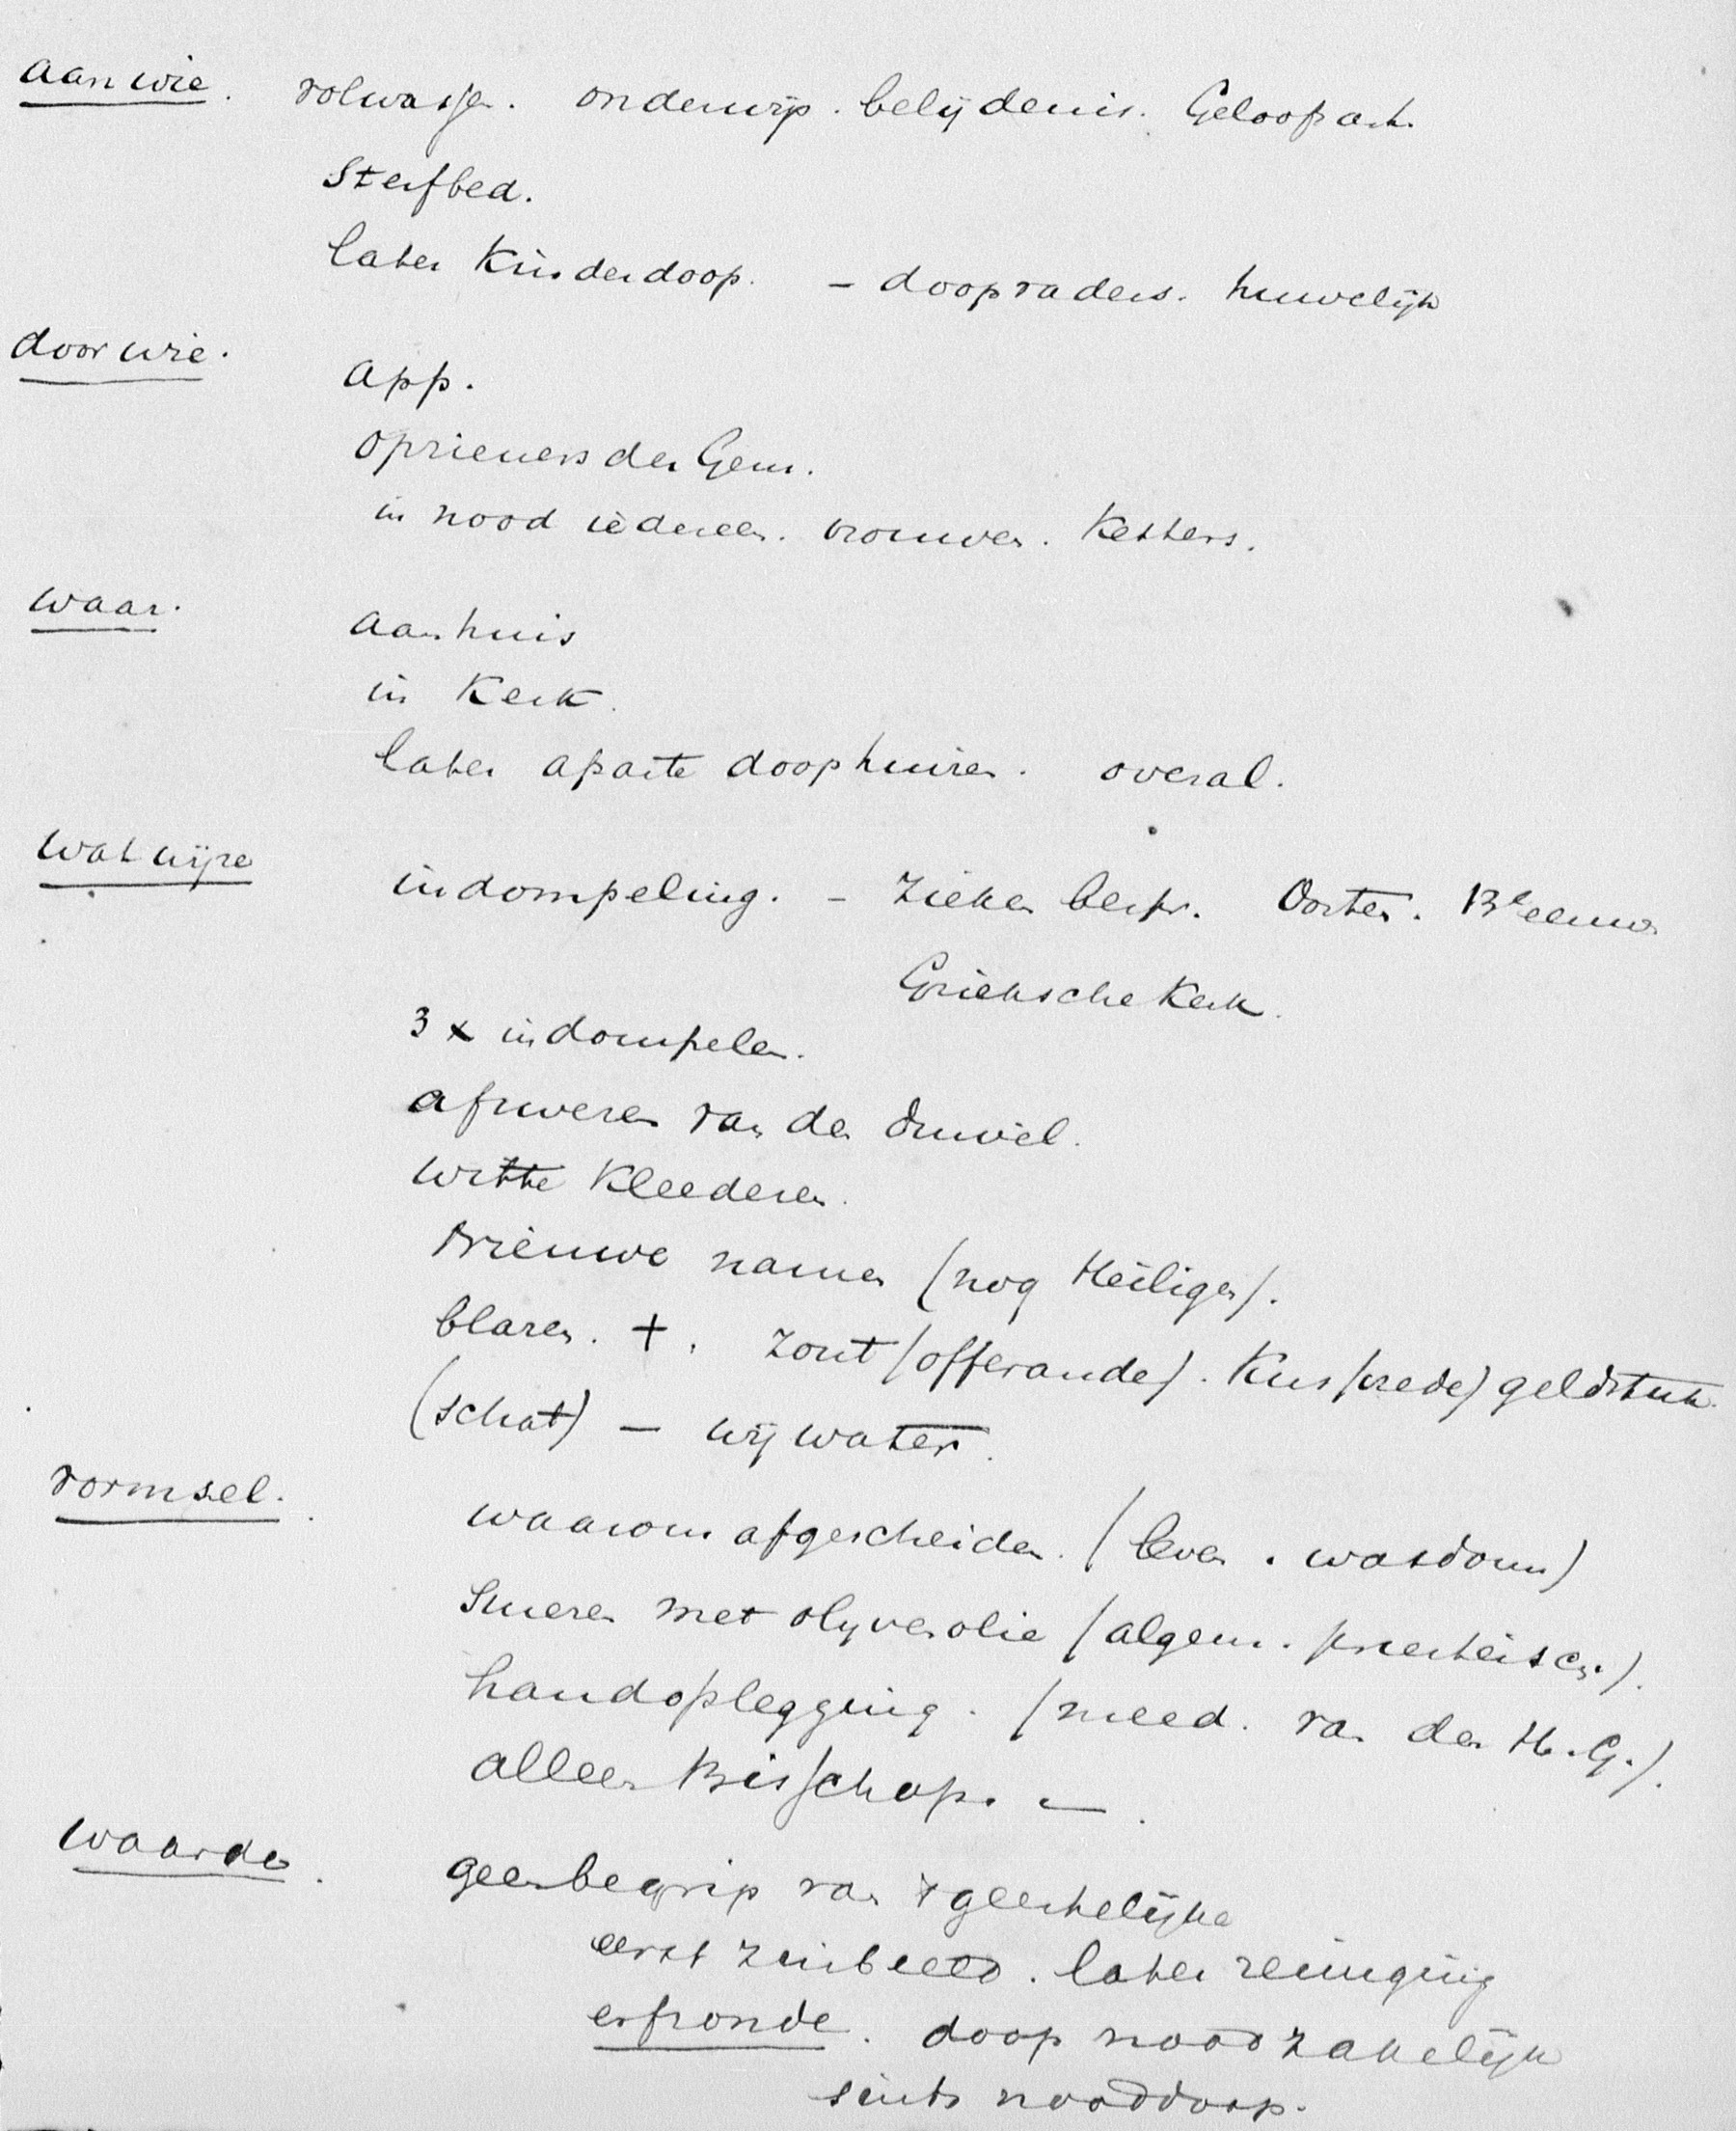 aan wie. volwassen. onderwijs. belijdenis. Geloofsart.
Sterfbed.
later Kinderdoop. – doopvaders. huwelijk
door wie. App.
opzieners der Gem.
in nood iedereen. vrouwen. Ketters.
waar. aan huis
in Kerk.
later aparte doophuizen. overal.
wat wijze indompeling. – Zieken bespr. Oosten. 13e eeuw
Grieksche Kerk.
3 x indompelen.
afzweren van den duivel.
witte Kleederen.
Nieuwe namen (nog Heiligen).
blazen. +. Zout (offerande). Kus (vrede) geldstuk
(schat) – wijwater.
vormsel. waarom afgescheiden. (leven. wasdom)
Smeren met olijvenolie (algem. priestersch.).
handoplegging. (meed. van den H. G.).
alleen Bisschop. –.
waarde. geen begrip van 't geestelijke
eerst zinbeeld. later reiniging
erfzonde. doop noodzakelijk
sinds nooddoop.